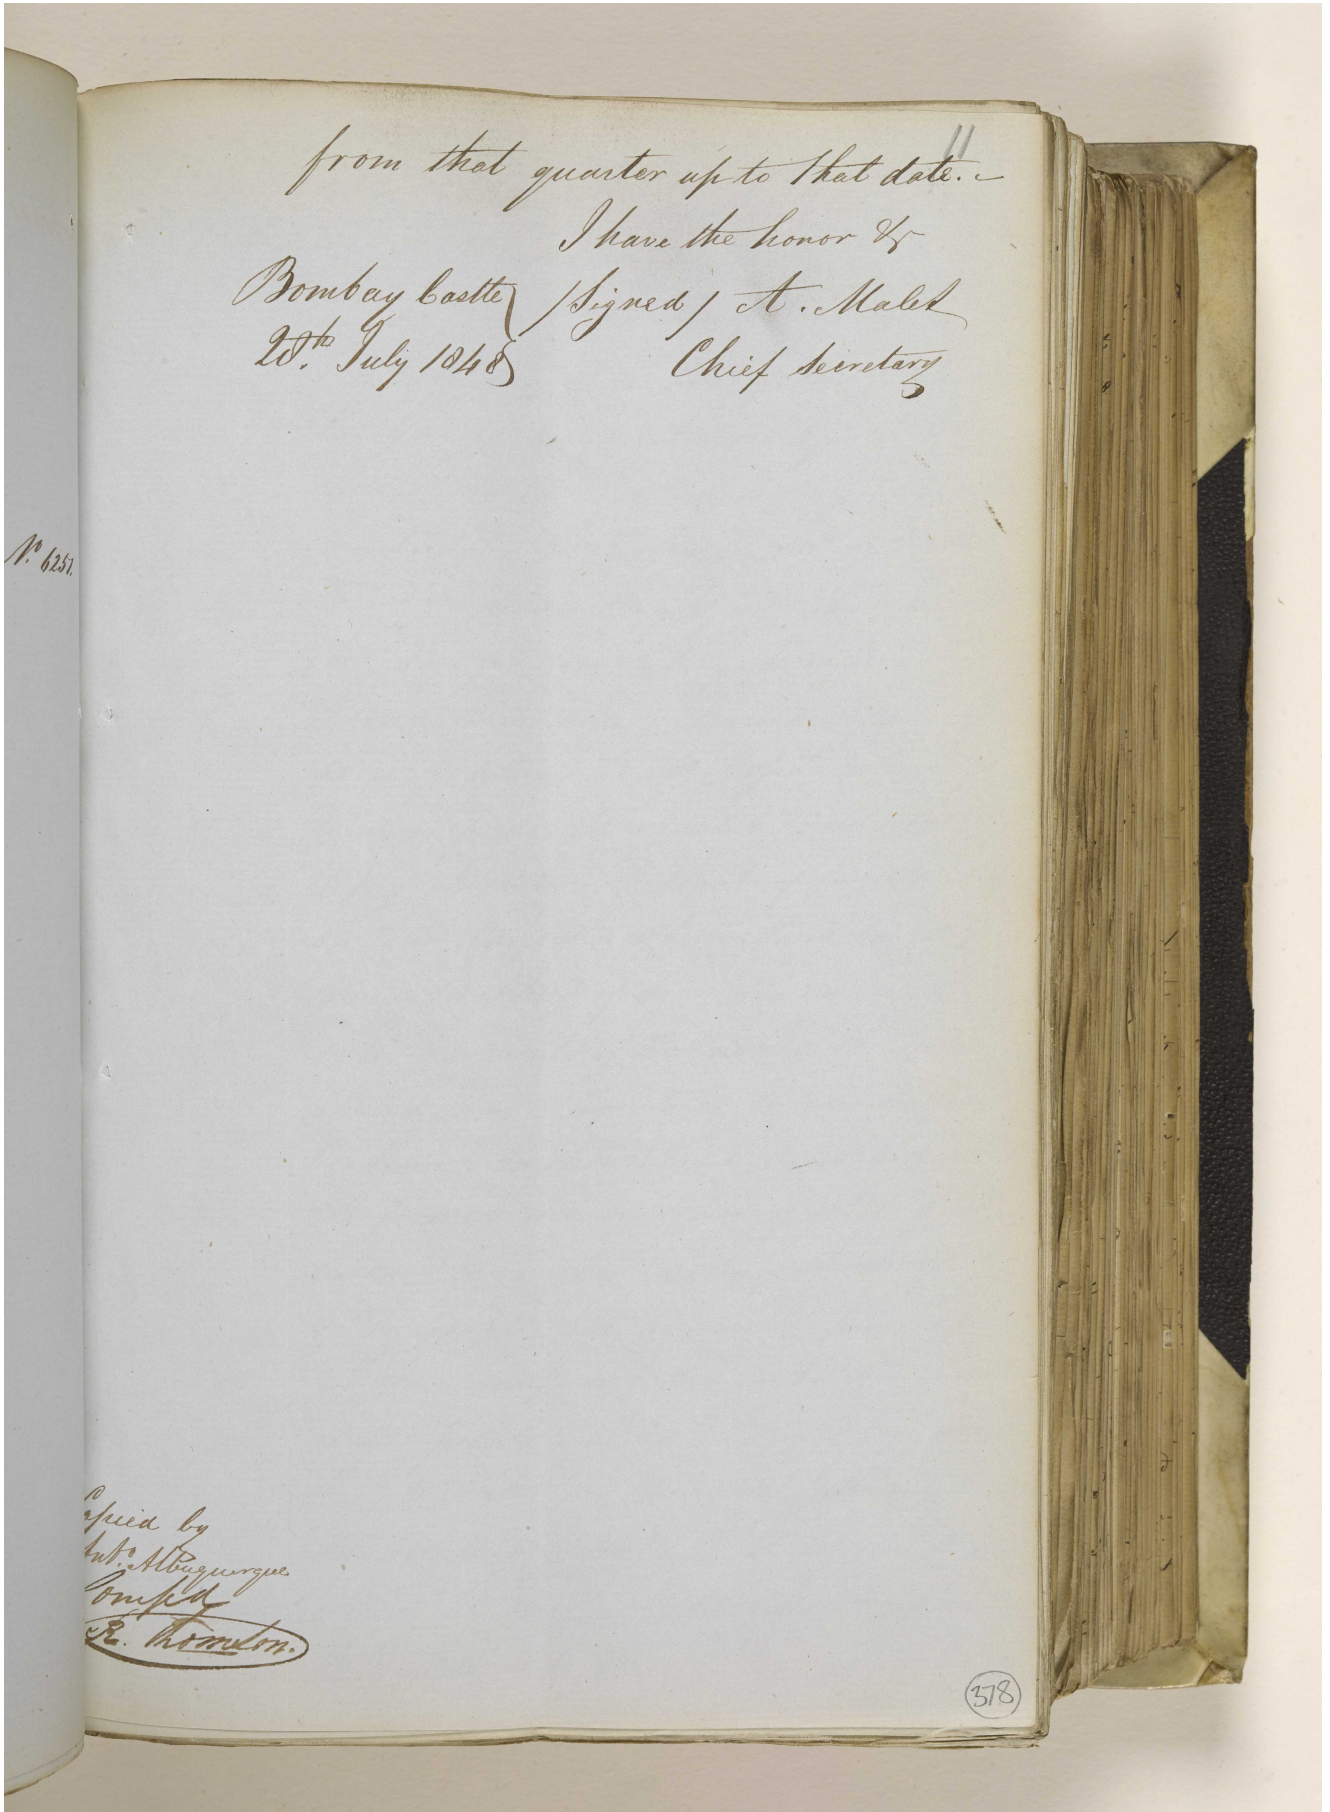 11
from that quarter up to that date.-
I have the honor &c
Bombay Castle } /Signed/ A. Malet
28th July 1848 } Chief Secretary
No 6251.
Copied by
Anto. Albuquerque
Comp'd
R. Thomson.
378